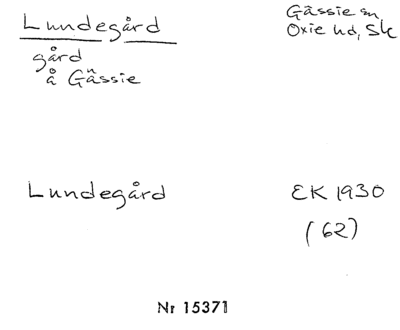 Lundegård
gård
å Gässie
Gässie sn,
Oxie hd, Sk
Lundegård
EK 1930
(62)
Nr 15371